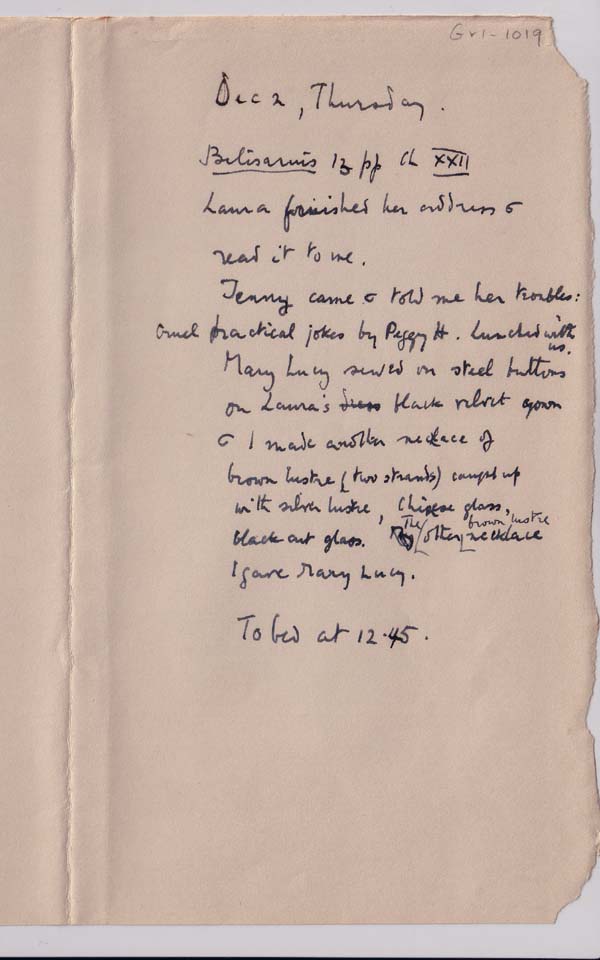 Gv1-1019
Dec 2, Thursday.
Belisarius 13 pp Ch XXII
Laura finished her address &
read it to me.
Jenny came & told me her troubles:
cruel practical jokes by Peggy H. Lunched with
us.
Mary Lucy sewed on steel buttons
on Laura's dress black velvet gown
& I made another necklace of
brown lustre (two strands) caught up
with silver lustre, Chinese glass,
black cut glass. The other brown lustre necklace
I gave Mary Lucy.
To bed at 12.45.